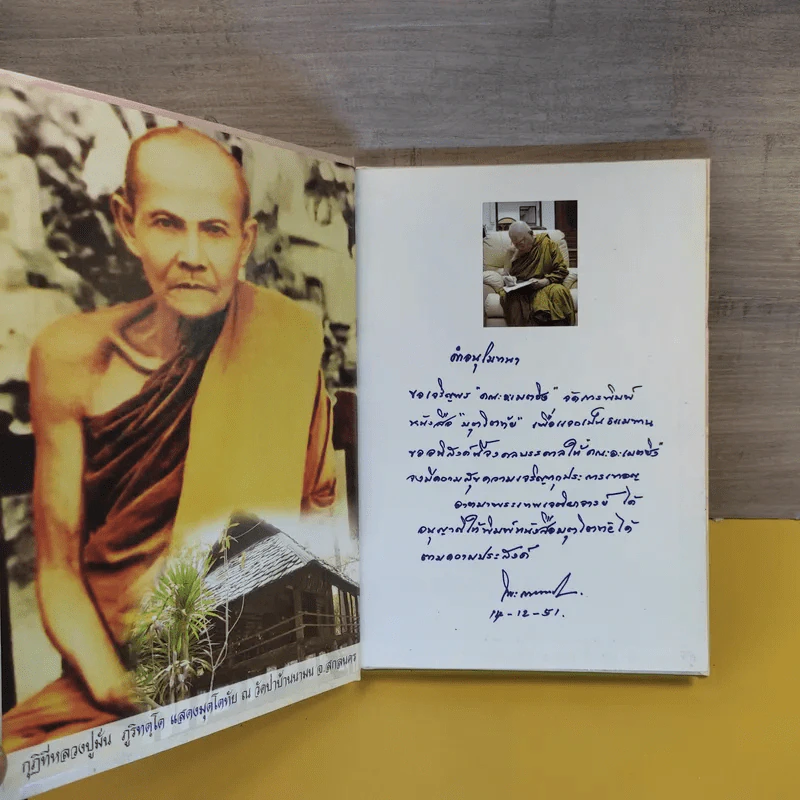 กุฏิที่หลวงปู่มั่น ภูริทตฺโต แสดงมุตโตทัย ณ วัดป่าบ้านนามน อ. สกลนคร
คำอนุโมทนา
ขอเจริญพร "คณะ" จัดการพิมพ์
หนังสือ "มุตโตทัย" เพื่อแจกเป็นธรรมทาน
ขออานิสงส์นี้จงดลบรรดาลให้คณะ
จงมีความสุขความเจริญทุกประการเทอญ
อาตมาพระเทพเจติยาจารย์ ได้
อนุญาตให้พิมพ์หนังสือมุตโตทัยได้
ตามความประสงค์
14-12-51.